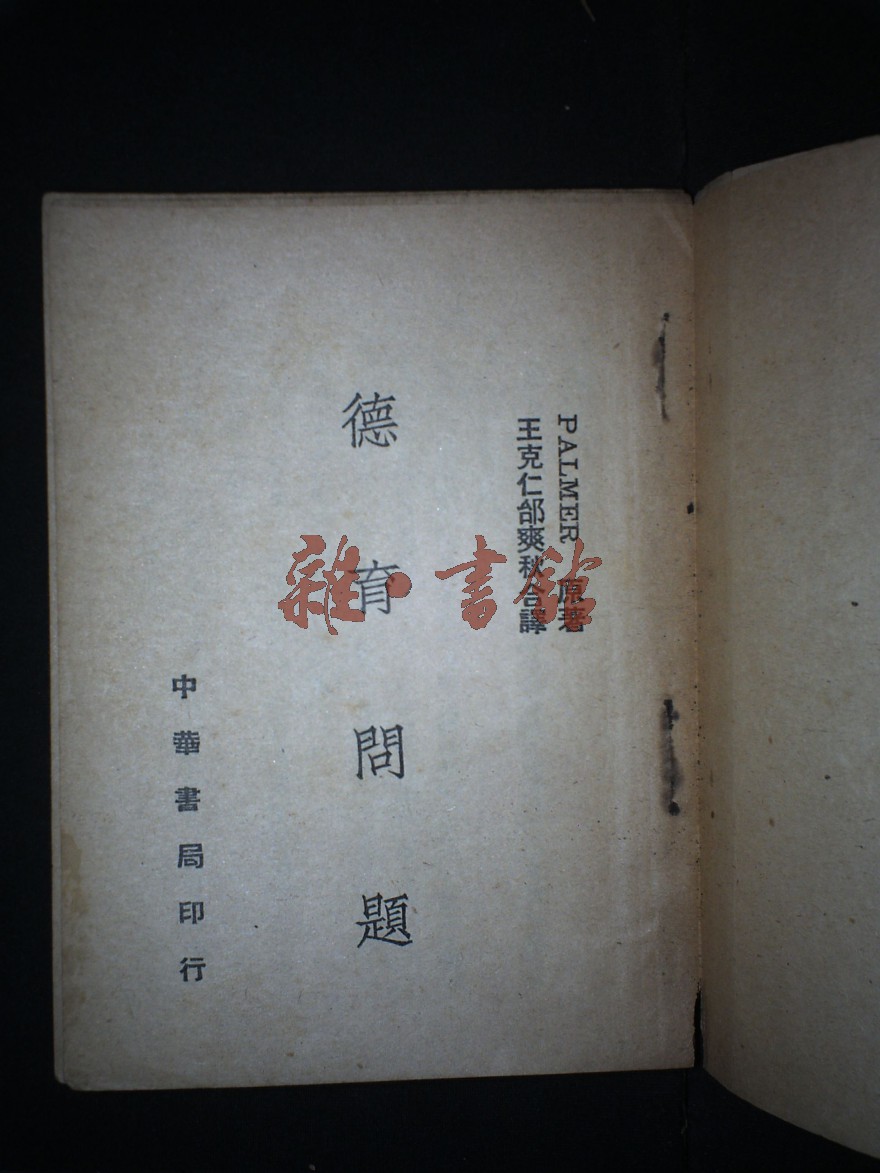 PALMER 原著
王克仁邰爽秋合譯
德育問題
中華書局印行
雜·書館